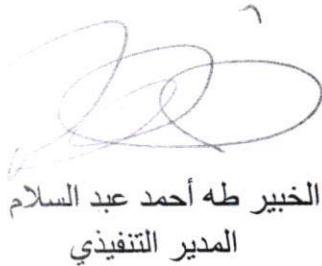 الخبير طه أحمد عبد السلام
المدير التنفيذي